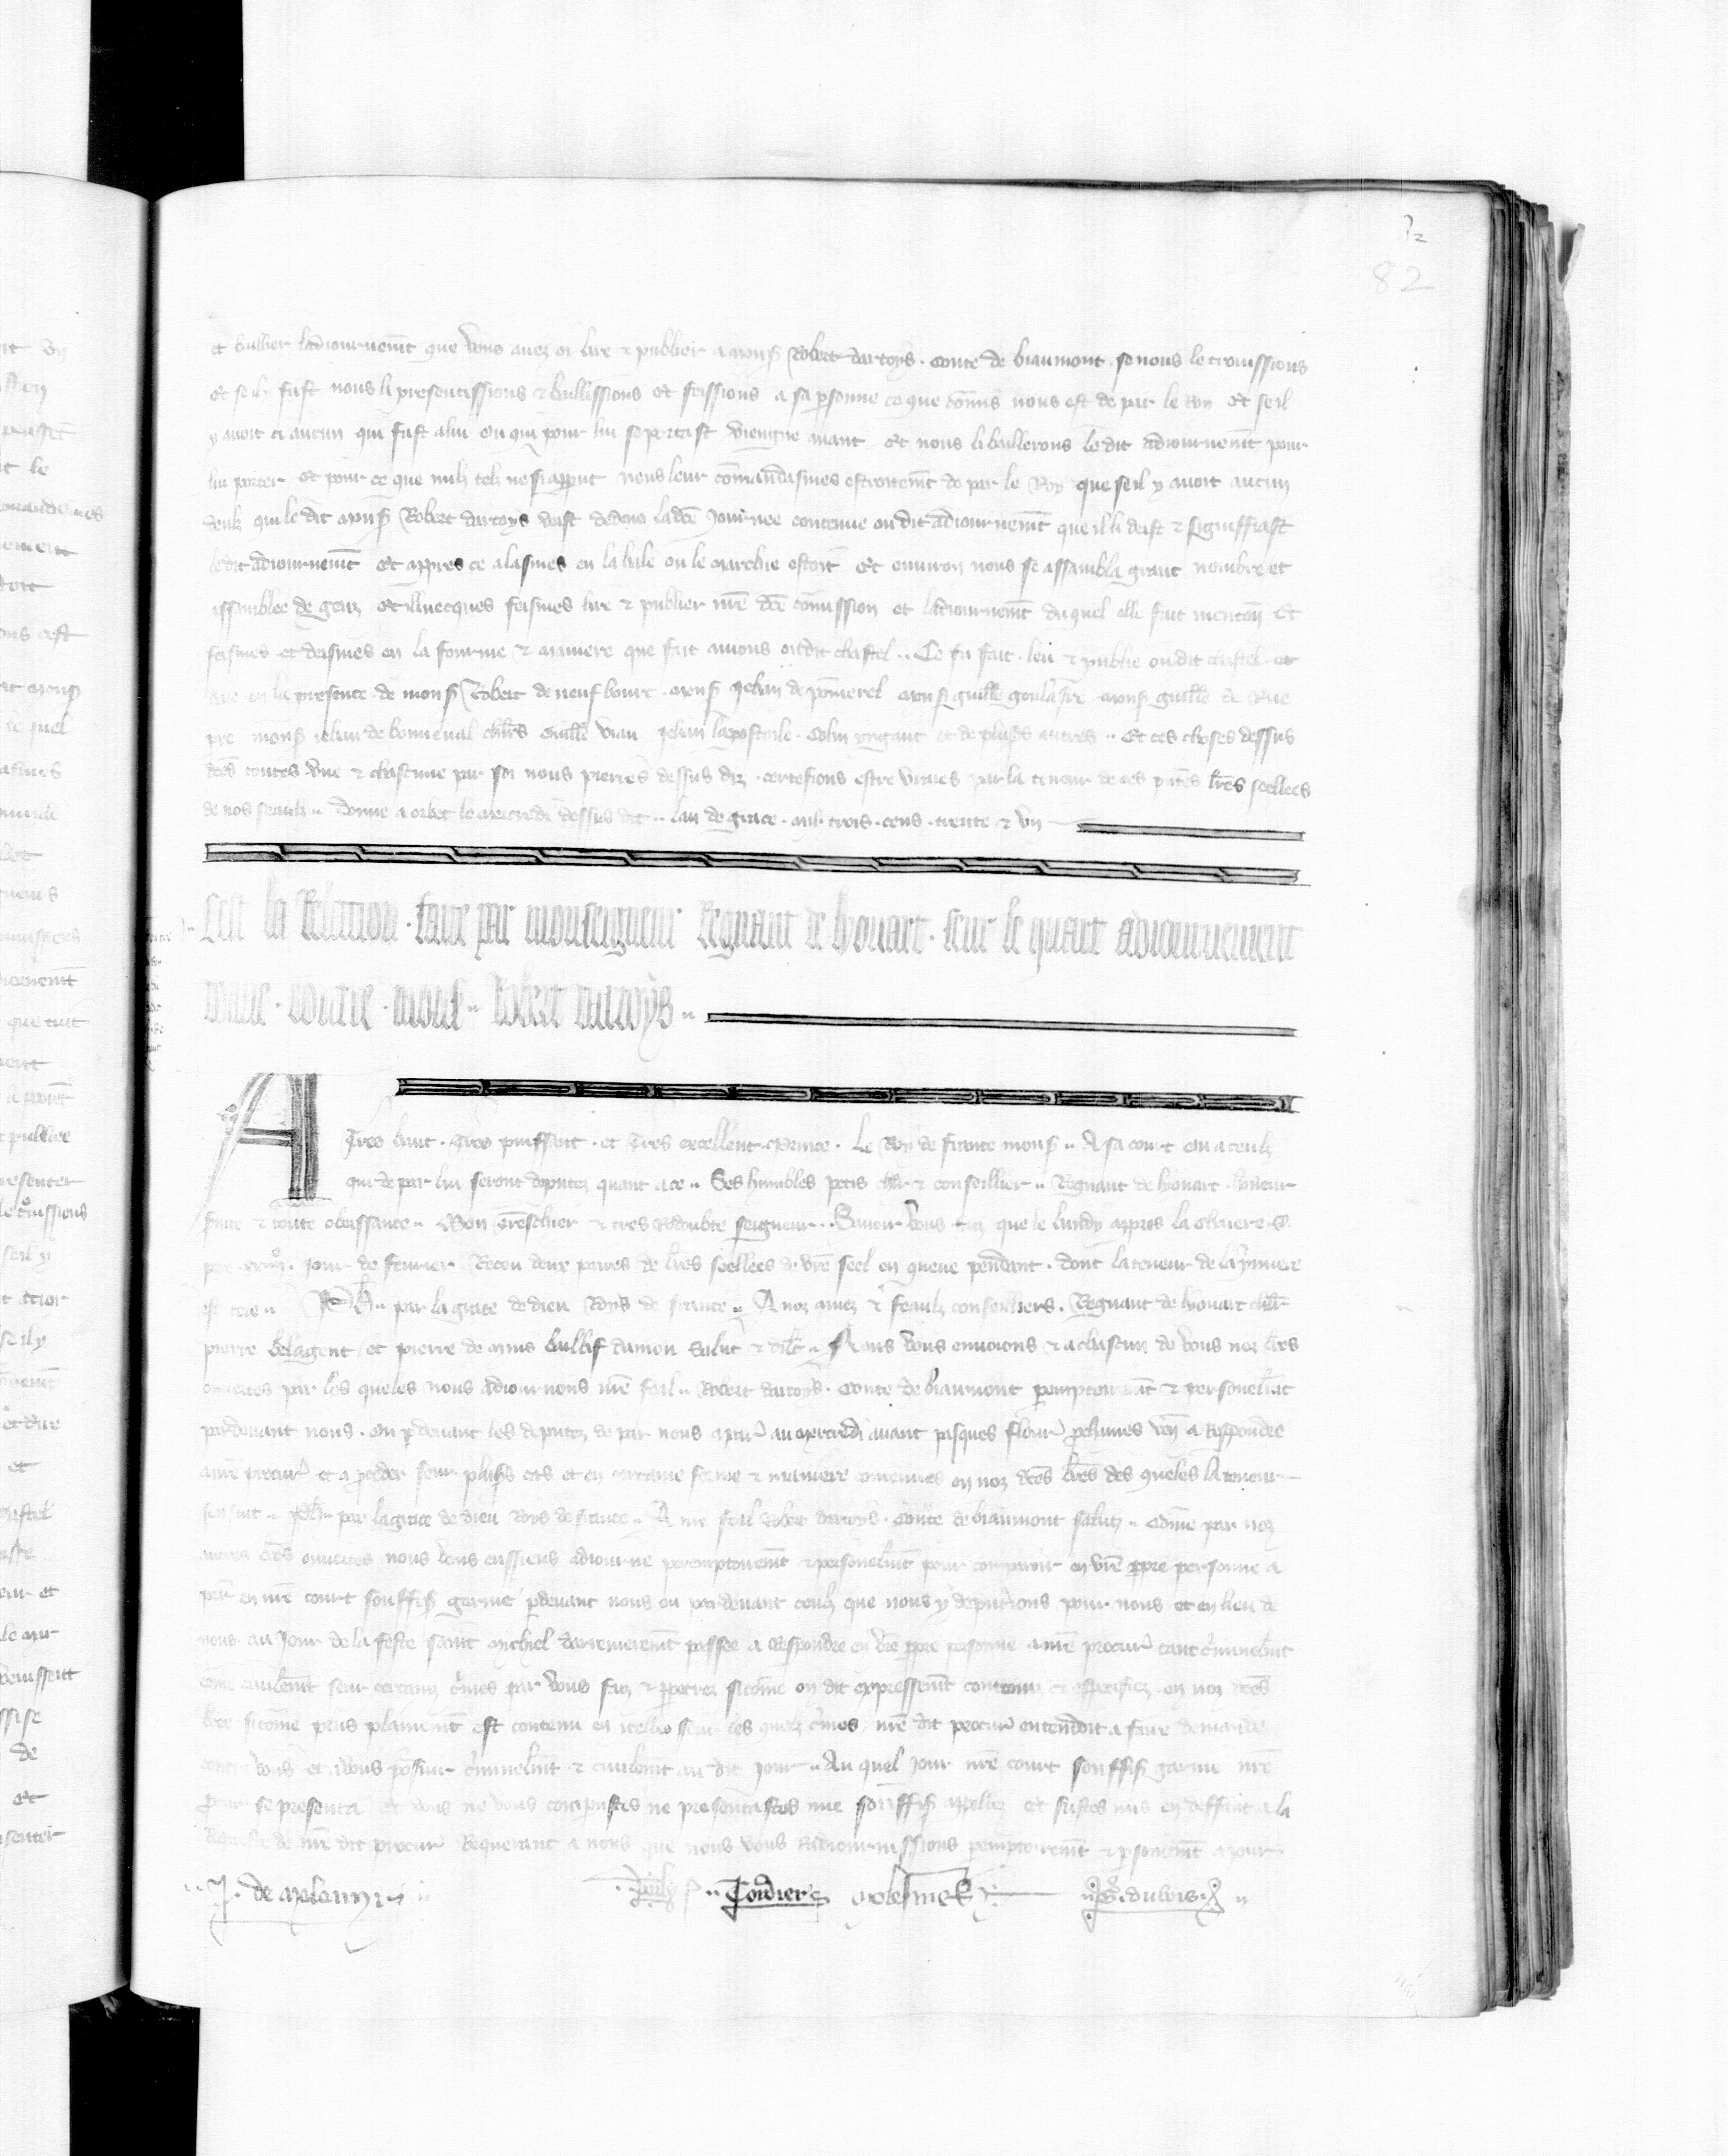 82
82
et baillier ladiournemt que vous auez oi lire & publier a mons Robert dartoys . conte de biaumont . se nous le trouissions
et se il y fust nous li presentissions & baillissions et feissions a sa psonne ce que comis nous est de par le Roy et seil
y auoit ci aucun qui fust a lui ou qui pour lui se portast viengne auant et nous li baillerons le dit adiournemt pour
lui porter et pour ce que nulz telz ne si apparut nous leur comandasmes estroitemt de par le Roy que seil y auoit aucun
deulz qui le dit mons Robert dartoys veist dedens la dce journee contenue ou dit adiournemt que il li deist & signiffiast
le dit adiournemt et apres ce alasmes en la hale ou le marchie estoit et enuiron nous se assambla grant nombre et
assamblee de genz et illuecques feismes lire & publier nre dce comission et ladiournemt du quel elle fait mencon et
feismes et deismes en la fourme & maniere que fait auions ou dit chastel .. Ce fu fait . leu & publie ou dit chastel . et
hale en la presence de mons Robert de neuf bourc . mons Jehan de pomerel mons guille goulafre . mons guille de Rue
pre mons iehan de bonneual chlrs Guille vian Jehan lapostoile . Colin pingant et de plusrs autres .. Et ces choses dessus
dces toutes vne & chascune par soi nous pierres dessus diz . certefions estre vraies par la teneur de ces pntes lres seellees
de nos seaulz .. Donne a orbec le mercredi dessus dit .. lan de grace . mil . trois . cens . trente & vn
Cest la Relacion . faite par monseigneur Regnaut de lyouart . seur le quart adiournement
donne . contre . mons .. Robert dartoys ..
A Tres haut . Tres puissant . et Tres excellent . Prince . Le Roy de france mons .. A sa court ou a ceulz
qui de par lui seront deputez quant a ce .. Ses humbles petis chlr & conseillier .. Regnaut de lyouart . honeur
& toute obeissance .. Mon Treschier & tres Redoubte seigneur .. Sauoir vous faiz que le lundy apres la chaiere S.
pere jour de feurier . Receu deux paires de lres seellees de vre seel en queue pendant . dont la teneur de la pmiere
est tele .. Ph .. par la grace de dieu Roys de france .. A noz amez & feaulz conseilliers . Regnaut de lyouart chlr
pierre belagent et pierre de mius baillif damou Salut & dilc .. Nous vous enuoions & a chascun de vous noz lres
ouuertes par les queles nous adiournons nre feal .. Robert dartoys . conte de biaumont pemptoiremt & personelmt
pardeuant nous . ou pdeuant les deputez de par nous a paris au mercredi auant pasques flouries prochaines ven a Respondre
a nre procur et a proceder seur plusrs cas et en certaine forme & maniere contenues en noz dces lres des queles la teneur
sensuit .. Ph .. par la grace de dieu Roys de france .. A nre feal Robert dartoys . Conte de biaumont saluz .. Come par noz
autres lres ouuertes nous vous eussiens adiourne peremptoiremt & personelmt pour comparoir en vre ppre personne a
paris en nre court souffis garnie pdeuant nous ou pardeuant ceulz que nous y deputerions pour nous et en lieu de
nous . au Jour de la feste saint Michel darrenieremt passee a Respondre en vre ppre personne a nre procur tant criminelmt
come ciuilemt seur certains crimes par vous faiz & ppetrez si come on dit expressemt contenuz & espicifiez en noz dces
lres si come plus plainemt est contenu en icelles seur les quelz crimes nre dit procur entendoit a faire demande
contre vous et a vous poursuir criminelmt & ciuilemt au dit jour .. Au quel jour nre court souffis garnie nre
procur se presenta et vous ne vous comparustes ne presentastes mie souffis appellez et fustes mis en deffaut a la
Requeste de nre dit procur Requerant a nous que nous vous Radiournissions pemptoiremt & psonelmt a jour
.. J . de meleun .. Tordiers molesmes .. G . dubois ..